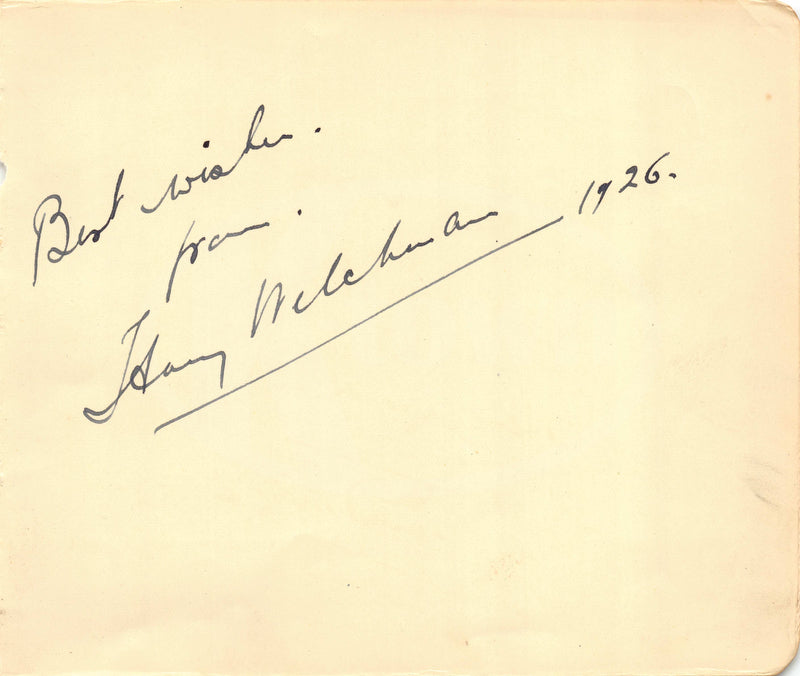 Best wishes.
from.
Harry Welchman 1926.